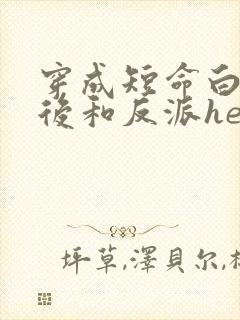 穿成短命白
後和反派he
坪草,澤貝尔,